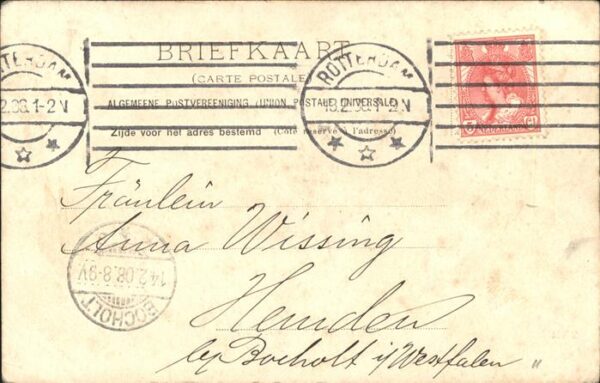 BRIEFKAART
(CARTE POSTALE)
ALGEMEENE POSTVEREENIGING (UNION POSTALE UNIVERSELLE)
Zijde voor het adres bestemd (Côté réservé à l'adresse)
ROTTERDAM
1-2N
ROTTERDAM
1-2N
5
Fräulein
Anna Wissing
Hemden
bey Bocholt i/Westfalen "
14.2.08.8-9V
BOCHOLT